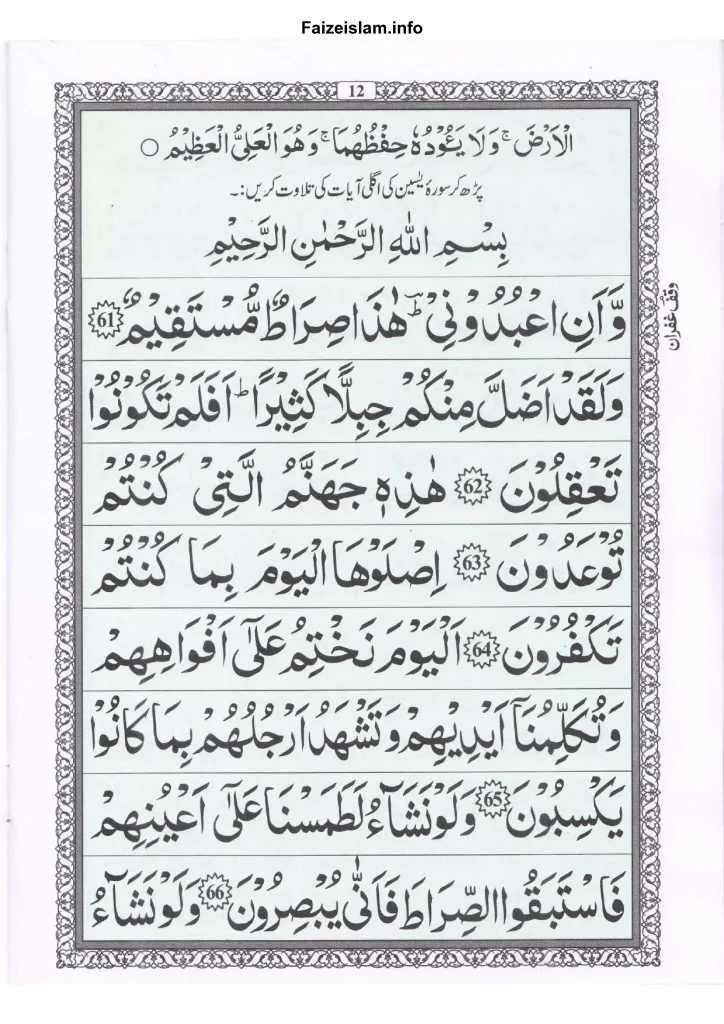 Faizeislam.info
12
الْاَرْضَ ۚ وَلَا يَـُٔوْدُهٗ حِفْظُهُمَا ۚ وَهُوَ الْعَلِيُّ الْعَظِيْمُ ○
پڑھ کر سورۂ یٰسین کی اگلی آیات کی تلاوت کریں:۔
بِسْمِ اللهِ الرَّحْمٰنِ الرَّحِيْمِ
وَّاَنِ اعْبُدُوْنِيْ ؕ هٰذَا صِرَاطٌ مُّسْتَقِيْمٌ 61
وقف غفران
وَلَقَدْ اَضَلَّ مِنْكُمْ جِبِلًّا كَثِيْرًا ؕ اَفَلَمْ تَكُوْنُوْا
تَعْقِلُوْنَ 62 هٰذِهٖ جَهَنَّمُ الَّتِيْ كُنْتُمْ
تُوْعَدُوْنَ 63 اِصْلَوْهَا الْيَوْمَ بِمَا كُنْتُمْ
تَكْفُرُوْنَ 64 اَلْيَوْمَ نَخْتِمُ عَلٰٓى اَفْوَاهِهِمْ
وَتُكَلِّمُنَآ اَيْدِيْهِمْ وَتَشْهَدُ اَرْجُلُهُمْ بِمَا كَانُوْا
يَكْسِبُوْنَ 65 وَلَوْ نَشَآءُ لَطَمَسْنَا عَلٰٓى اَعْيُنِهِمْ
فَاسْتَبَقُوا الصِّرَاطَ فَاَنّٰى يُبْصِرُوْنَ 66 وَلَوْ نَشَآءُ